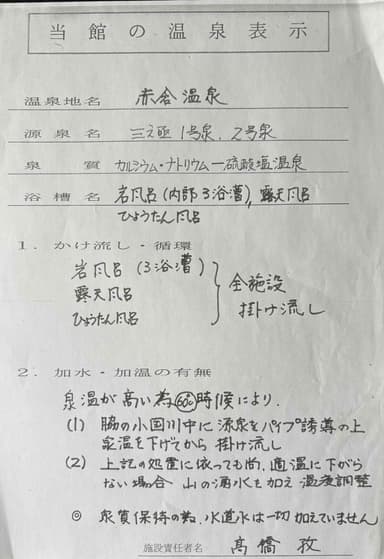 当館の温泉表示
温泉地名 赤倉温泉
源泉名 三之亟1号泉、2号泉
泉質 カルシウム・ナトリウム一硫酸塩温泉
浴槽名 岩風呂(内部3浴漕)、露天風呂
ひょうたん風呂
1. かけ流し・循環
岩風呂(3浴漕)
露天風呂
ひょうたん風呂
全施設
掛け流し
2. 加水・加温の有無
泉温が高い為(60℃)時候により、
(1) 脇の小国川中に源泉をパイプ誘導の上
泉温を下げてから掛け流し
(2) 上記の処置に依っても尚、適温に下がら
ない場合 山の湧水を加え 温度調整
◎ 泉質保持の為、水道水は一切加えていません
施設責任者名 高橋 孜